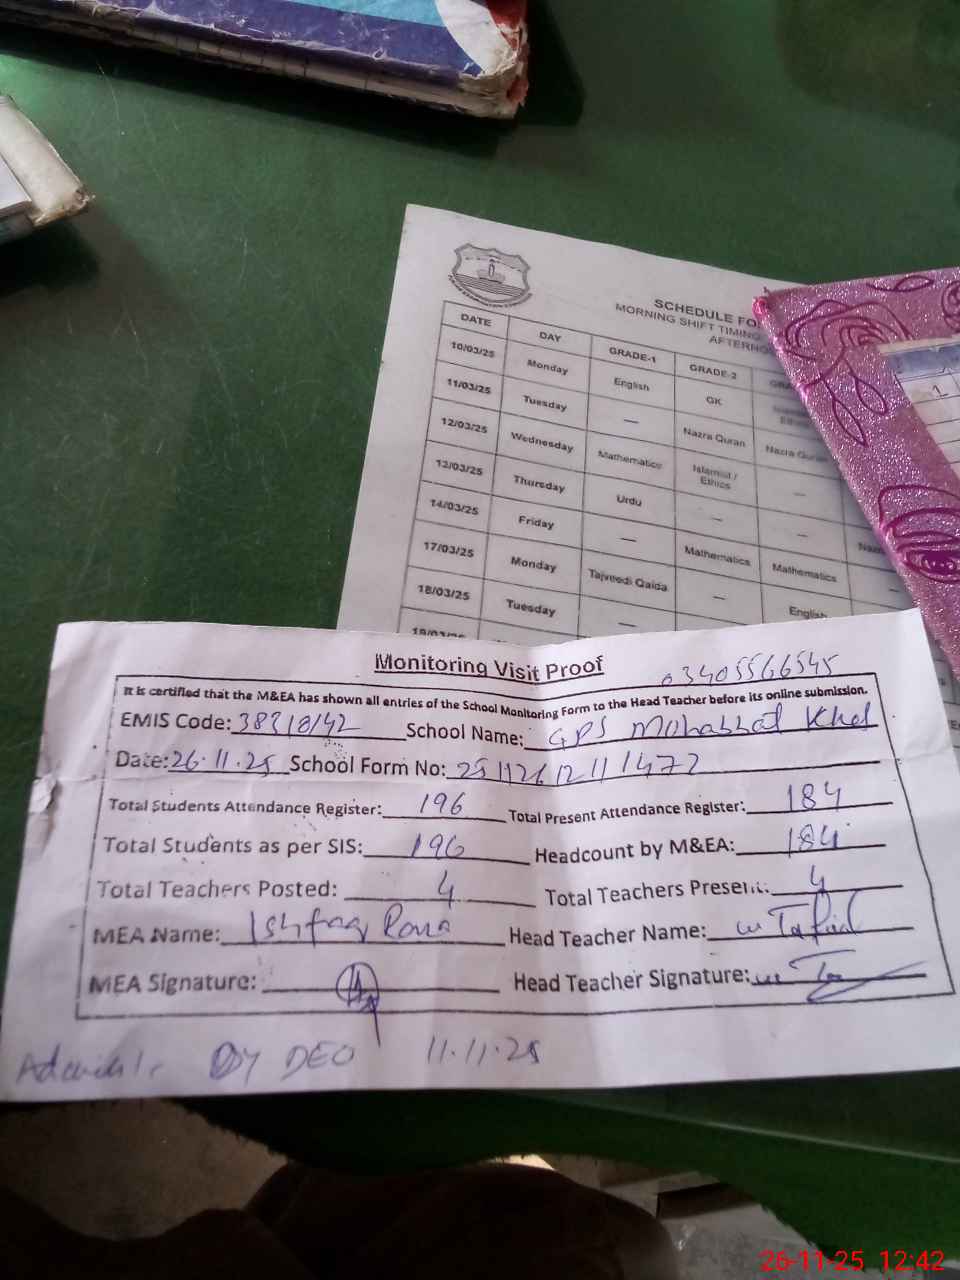 SCHEDULE FO
MORNING SHIFT TIMING
AFTERNO
DATE DAY GRADE-1 GRADE-2
10/03/25 Monday English GK
11/03/25 Tuesday — Nazra Quran Nazra Quran
12/03/25 Wednesday Mathematics Islamiat / Ethics —
13/03/25 Thursday Urdu — —
14/03/25 Friday — Mathematics Mathematics
17/03/25 Monday Tajveedi Qaida — English
18/03/25 Tuesday —
1
Monitoring Visit Proof
03405566545
It is certified that the M&EA has shown all entries of the School Monitoring Form to the Head Teacher before its online submission.
EMIS Code: School Name: GPS Mohabbat Khel
Date: 26.11.25 School Form No:
Total Students Attendance Register: 196 Total Present Attendance Register: 184
Total Students as per SIS: 196 Headcount by M&EA: 184
Total Teachers Posted: 4 Total Teachers Present: 4
MEA Name: Ishfaq Rana Head Teacher Name:
MEA Signature: Head Teacher Signature:
DY DEO 11.11.25
26-11-25 12:42